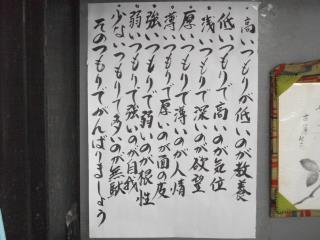 ・高いつもりが低いのが教養
・低いつもりで高いのが気位
・浅いつもりで深いのが欲望
・厚いつもりで薄いのが人情
・薄いつもりで厚いのが面の皮
・強いつもりで弱いのが根性
・弱いつもりで強いのが自我
・少ないつもりで多いのが無駄
そのつもりでがんばりましょう